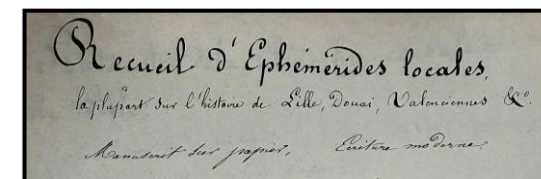 Recueil d'Ephémérides locales,
la plupart sur l'histoire de Lille, Douai, Valenciennes &c.
Manuscrit sur papier, Ecriture moderne.